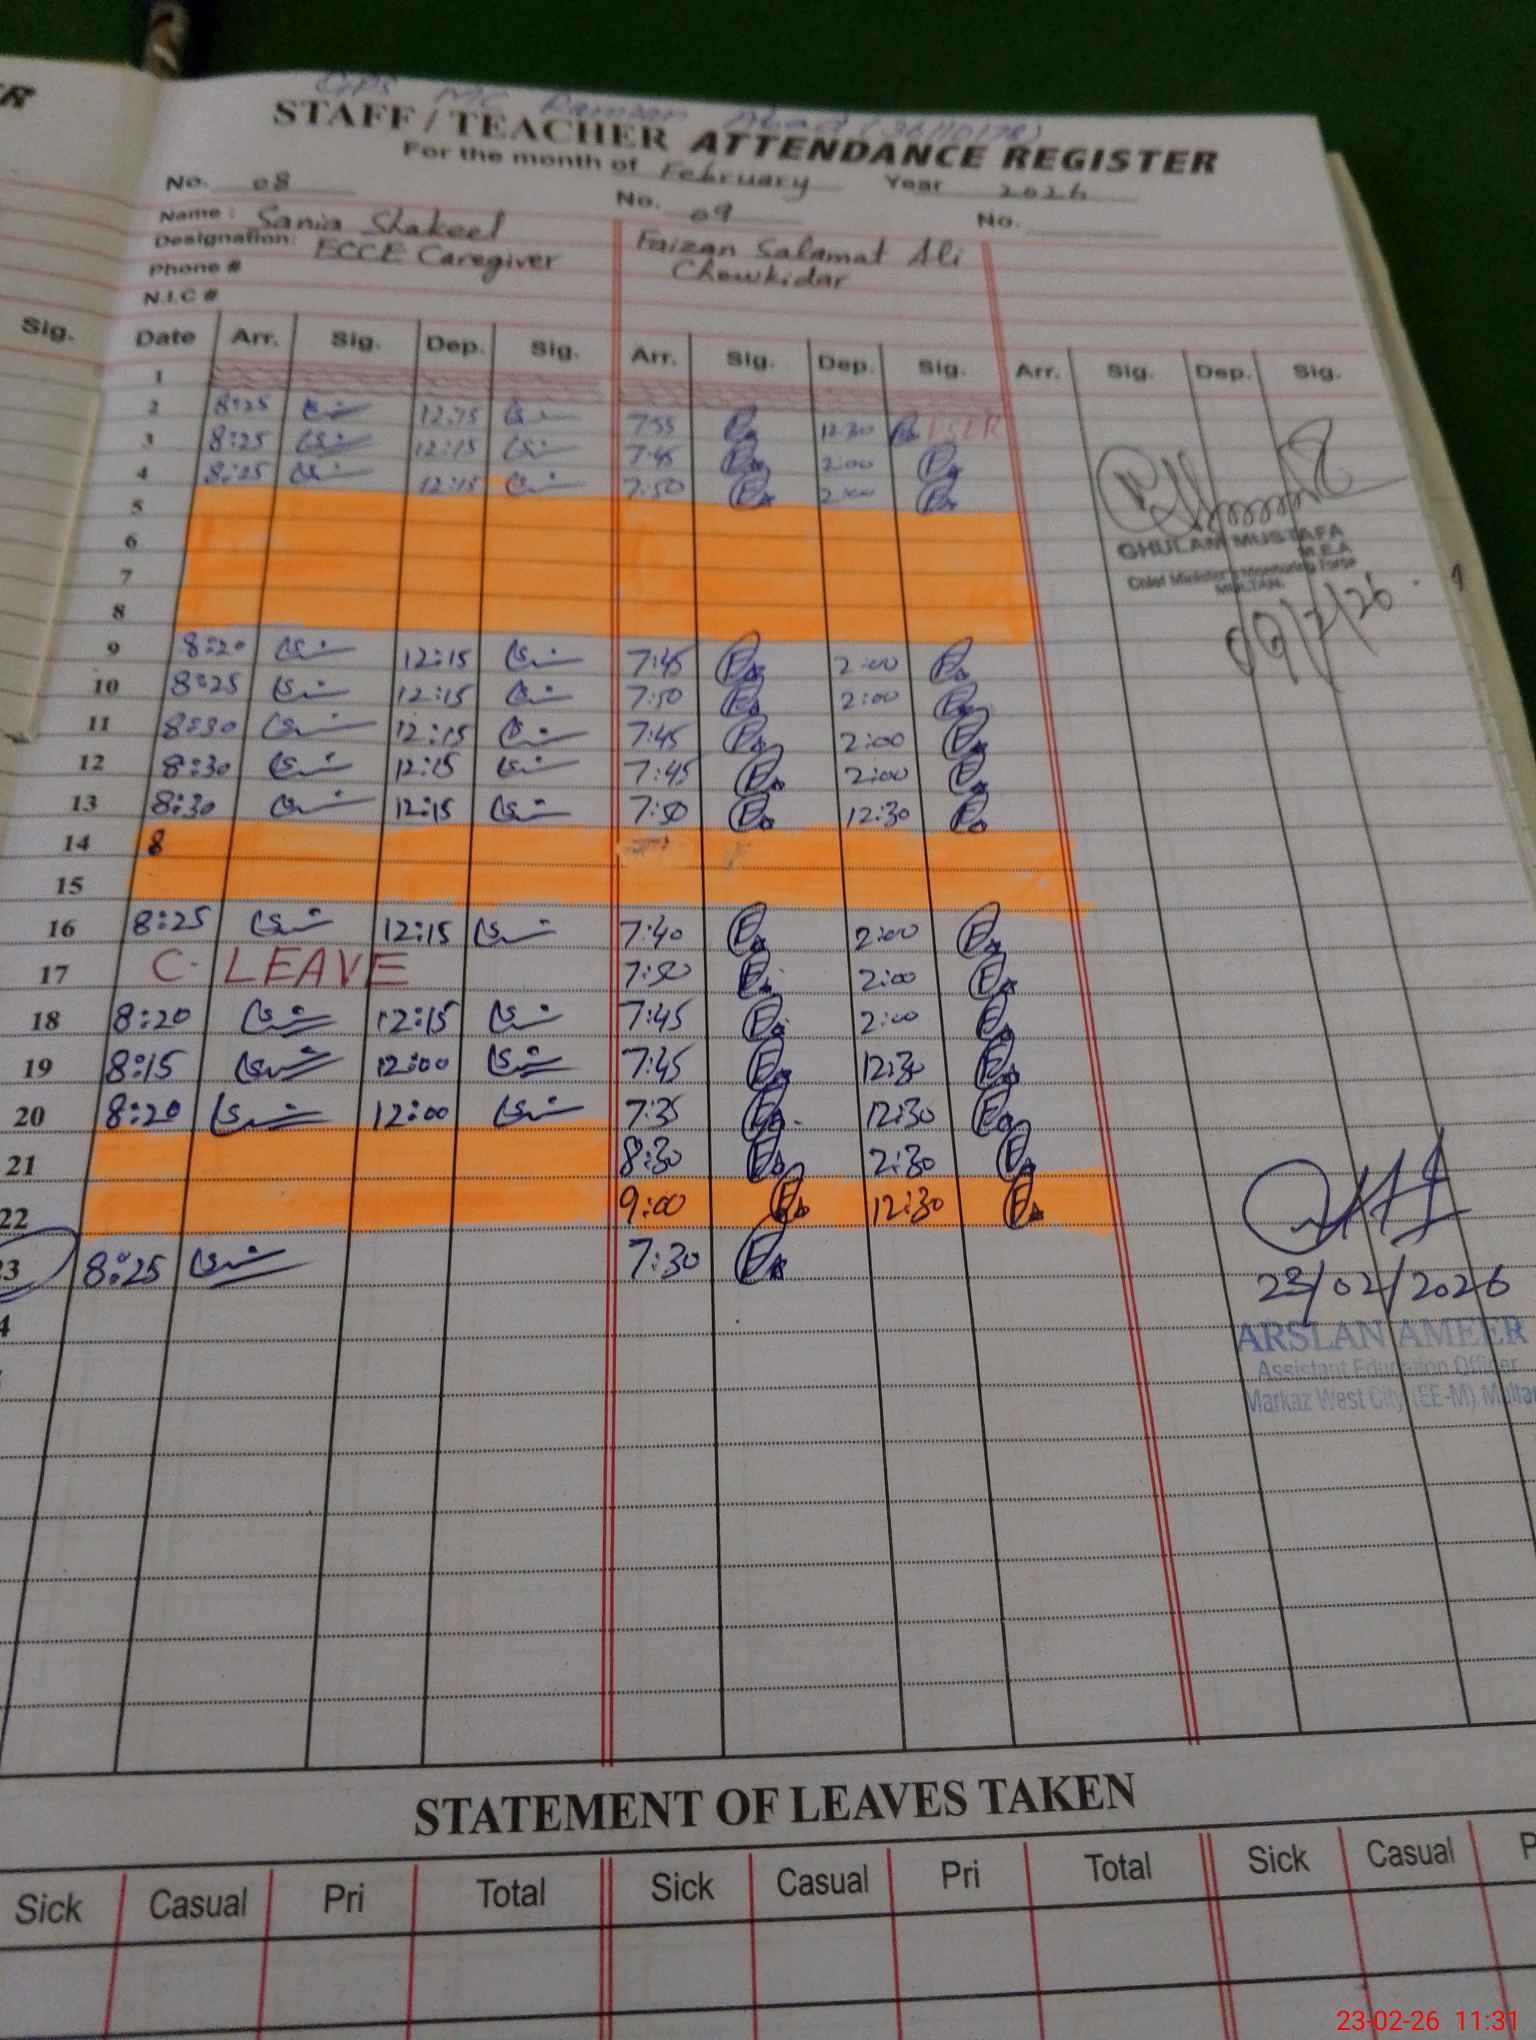 ER
GPS MC
STAFF / TEACHER ATTENDANCE REGISTER
For the month of February Year 2026
No. 08 No. 09 No.
Name: Sania Shakeel Faizan Salamat Ali
Designation: ECCE Caregiver Chowkidar
Phone #
N.I.C #
Sig. Date Arr. Sig. Dep. Sig. Arr. Sig. Dep. Sig. Arr. Sig. Dep. Sig.
1
2 8:25 12:15 7:55 12:30
3 8:25 12:15 7:45 2:00
4 8:25 12:15 7:50 2:00
5
GHULAM MUSTAFA
M.E.A
6
Chief Minister's Monitoring Force
MULTAN.
7
8
09/2/26
9 8:20 12:15 7:45 2:00
10 8:25 12:15 7:50 2:00
11 8:30 12:15 7:45 2:00
12 8:30 12:15 7:45 2:00
13 8:30 12:15 7:50 12:30
14 8
15
16 8:25 12:15 7:40 2:00
17 C-LEAVE 7:50 2:00
18 8:20 12:15 7:45 2:00
19 8:15 12:00 7:45 12:30
20 8:20 12:00 7:35 12:30
21 8:30 2:30
22 9:00 12:30
23 8:25 7:30
23/02/2026
4
ARSLAN AMEER
Assistant Education Officer
Markaz West City (EE-M) Multan
STATEMENT OF LEAVES TAKEN
Sick Casual Pri Total Sick Casual Pri Total Sick Casual P
23-02-26 11:31